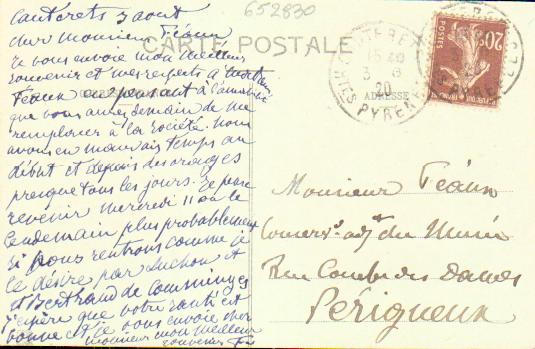 652830
CARTE POSTALE
Cauterets 3 août
cher Monsieur Féaux
Je vous envoie mon meilleur
souvenir et mes respects à
Féaux en pensant à l'amabilité
que vous avez demain de me
remplacer à la Société. Nous
avons eu mauvais temps au
début et depuis des orages
presque tous les jours. Je pense
revenir mercredi 11 ou le
lendemain plus probablement
si nous rentrons comme je
le désire par Luchon et
St Bertrand de Comminges
j'espère que votre santé est
bonne et je vous envoie cher
monsieur mon meilleur
souvenir
CAUTERETS
15 40
3 8
20
HTES PYRENEES
20c
ADRESSE
Monsieur Féaux
Conserv. adj. du Musée
Rue Combe des Dames
Périgueux